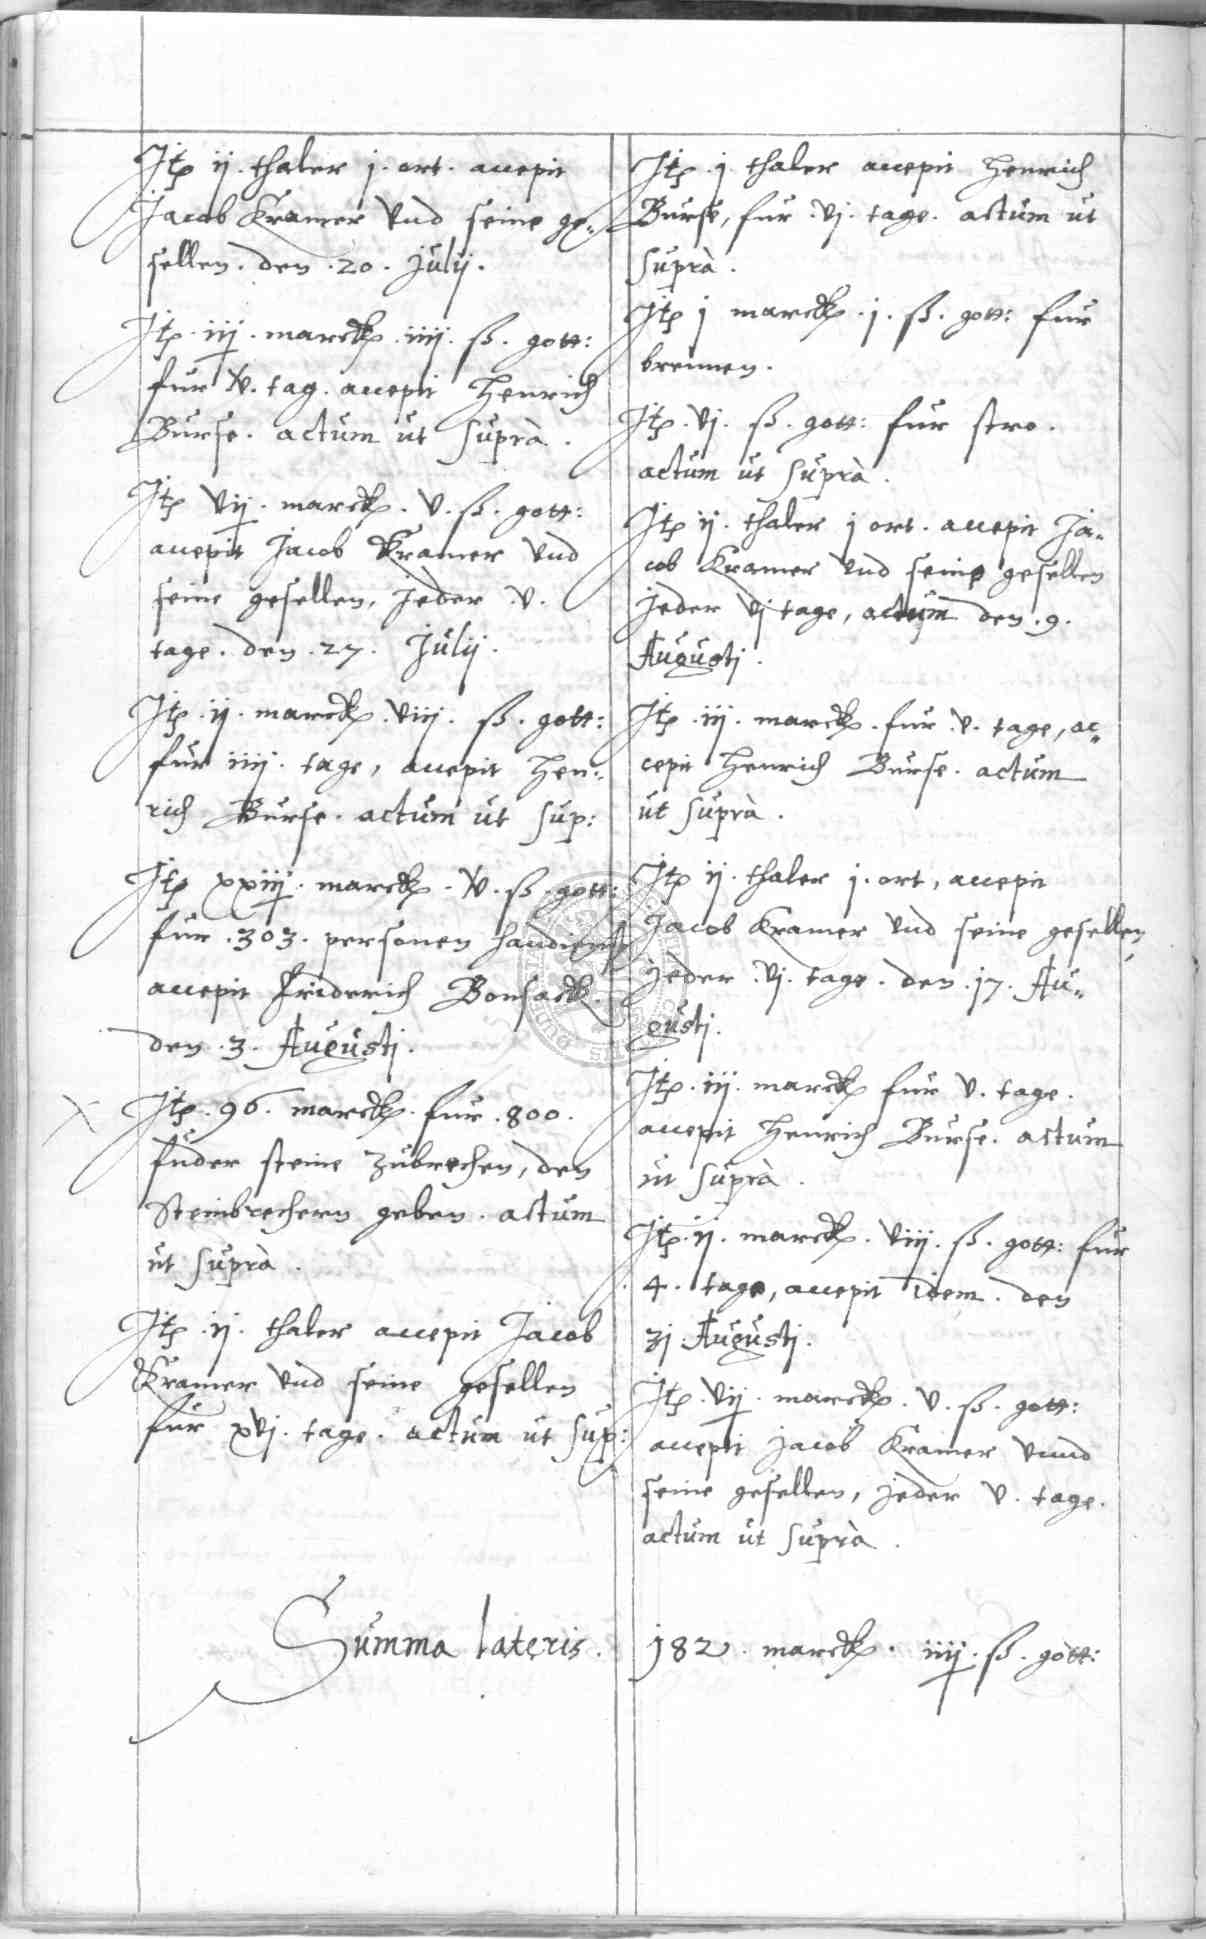 Itp ij. thaler j. ort. accepit
Jacob Kramer und seine ge-
sellen. den .20. Julij.
Itp. iij. marck. iiij. ß. gott:
fur v. tag. accepit Henrich
Burse. actum ut suprà.
Itp vij. marck. v. ß. gott:
accepit Jacob Kramer und
seine gesellen, jeder .v.
tage. den .27. Julij.
Itp. ij. marck. viij. ß. gott:
fur iiij. tage, accepit Hen-
rich Burse. actum ut sup:
Itp xxiij. marck. v. ß. gott:
fur .303. personen handienst
accepit Friderich Bonsack.
den .3. Augustj.
Itp. 96. marck. fur .800.
fuder steine zubrechen, den
Steinbrechern geben. actum
ut suprà.
Itp. ij. thaler accepit Jacob
Kramer und seine gesellen
fur xvj. tage. actum ut sup:
Itp. j. thaler accepit Henrich
Burse, fur .vj. tage. actum ut
suprà.
Itp j marck. j. ß. gott: fur
brennen.
Itp. vj. ß. gott: fur stro.
actum ut suprà.
Itp ij. thaler j ort. accepit Ja-
cob Kramer und seine gesellen
jeder vj tage, actum den .9.
Augustj.
Itp. iij. marck. fur .v. tage, ac-
cepit Henrich Burse. actum
ut suprà.
Itp ij. thaler j. ort, accepit
Jacob Kramer und seine gesellen
jeder .vj. tage. den .17. Au-
gustj.
Itp. iij. marck fur v. tage.
accepit Henrich Burse. actum
ut suprà.
Itp. ij. marck. viij. ß. gott: fur
4. tage, accepit idem. den
31. Augustj.
Itp. vij. marck. v. ß. gott:
accepit Jacob Kramer vnnd
seine gesellen, jeder v. tage.
actum ut suprà.
Summa lateris. 182. marck. iiij. ß. gott: